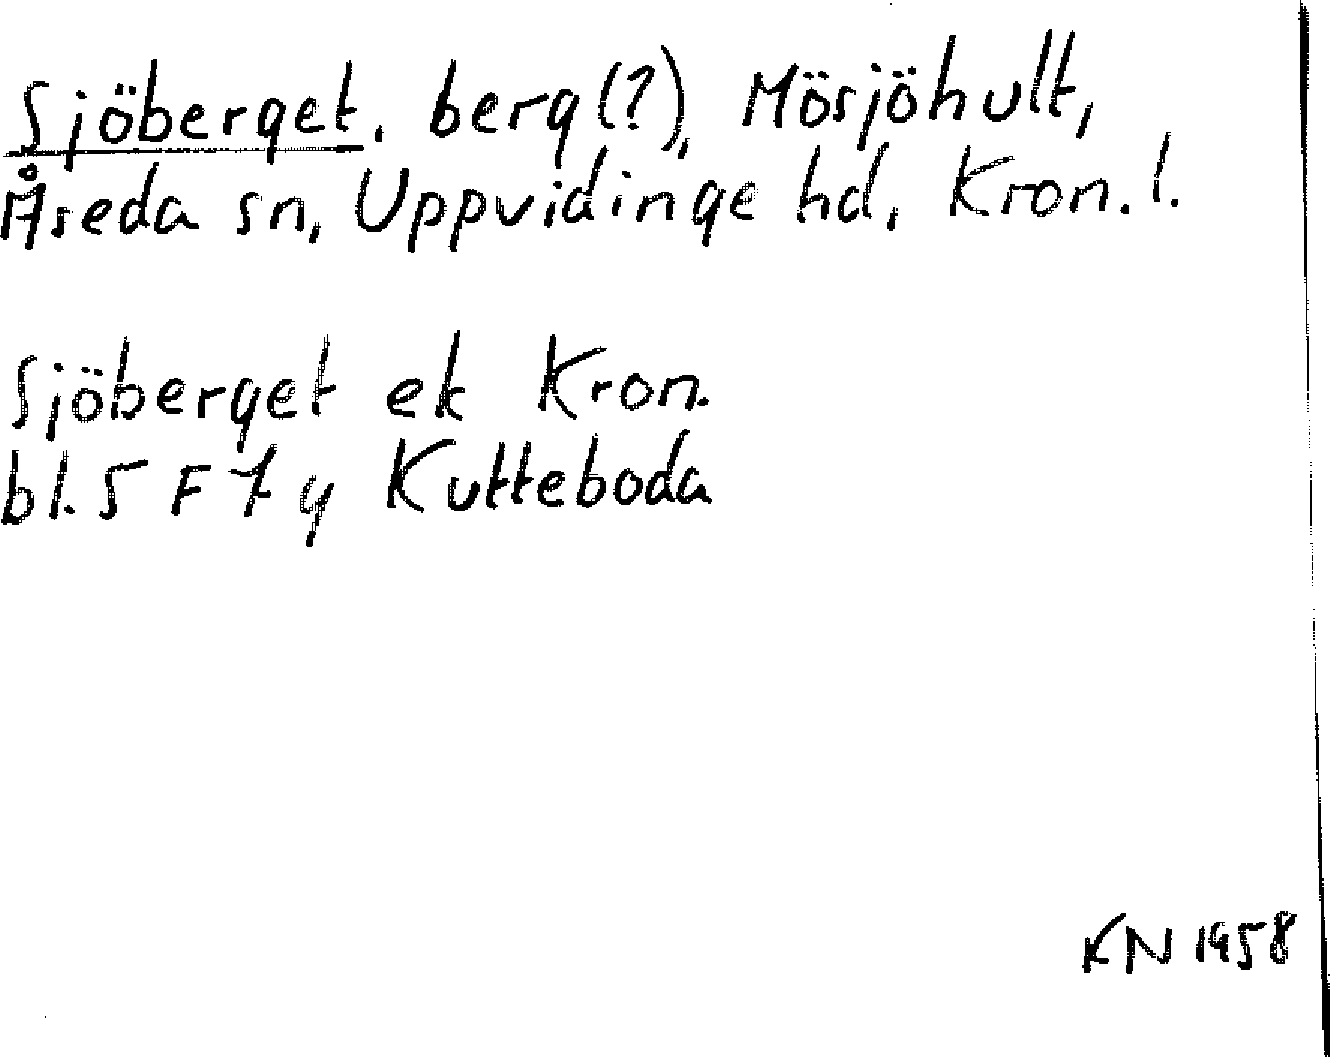 Sjöberget, berg(?), Mösjöhult,
Åseda sn, Uppvidinge hd, Kron. l.
Sjöberget ek Kron.
bl. 5 F 7 g Kutteboda
KN 1958